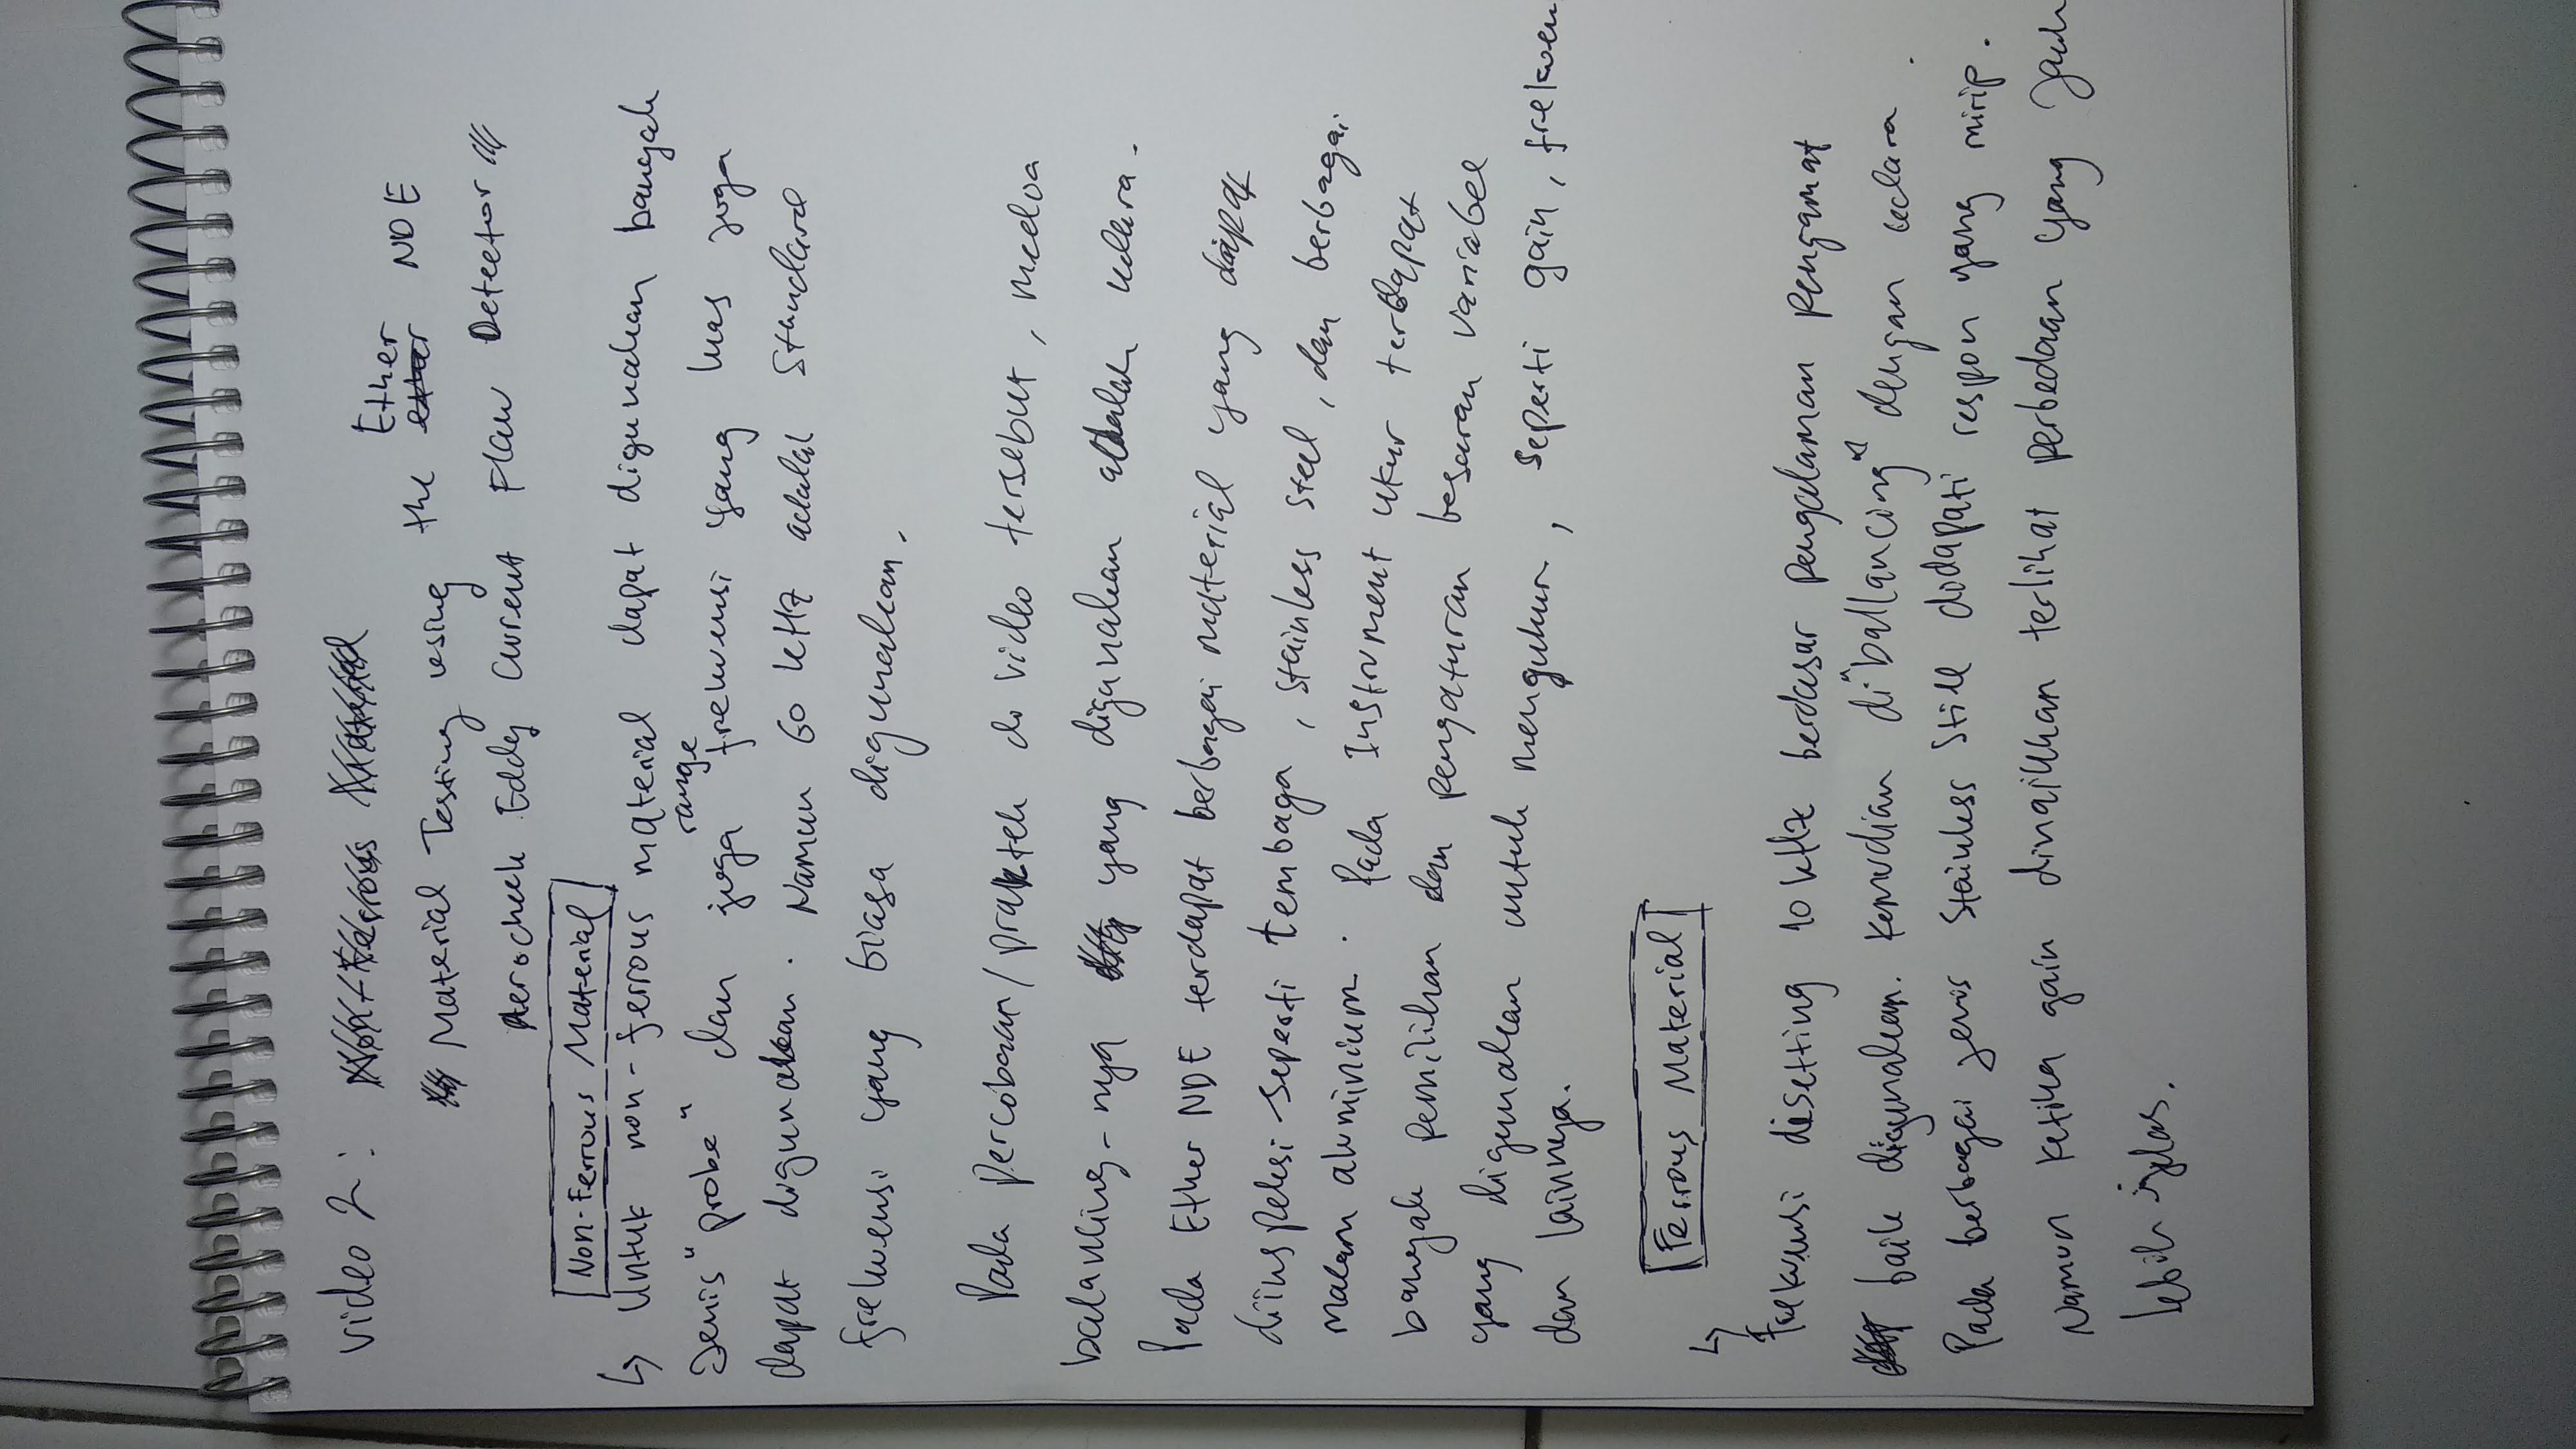 video 2 :
Material Testing using the Ether NDE
Aerocheck Eddy Current Flaw Detector
Non-Ferrous Material
↳ Untuk non-ferrous material dapat digunakan banyak
Jenis "probe" dan juga range frekuensi yang luas juga
dapat digunakan. Namun 60 kHz adalah Standard
frekuensi yang biasa digunakan.
Pada percobaan/praktek di video tersebut, media
balancing-nya yang digunakan adalah udara.
Pada Ether NDE terdapat berbagai material yang dapat
diinspeksi seperti tembaga, stainless steel, dan berbagai
macam aluminium. Pada Instrument ukur terdapat
banyak pemilihan dan pengaturan besaran variabel
yang digunakan untuk mengukur, seperti gain, frekuen
dan lainnya.
Ferrous Material
↳
Frekuensi disetting 10 kHz berdasar pengalaman pengamat
baik digunakan. Kemudian di"ballancing" dengan udara.
Pada berbagai jenis Stainless Still didapati respon yang mirip.
Namun ketika gain dinaikkan terlihat perbedaan yang Jauh
lebih jelas.